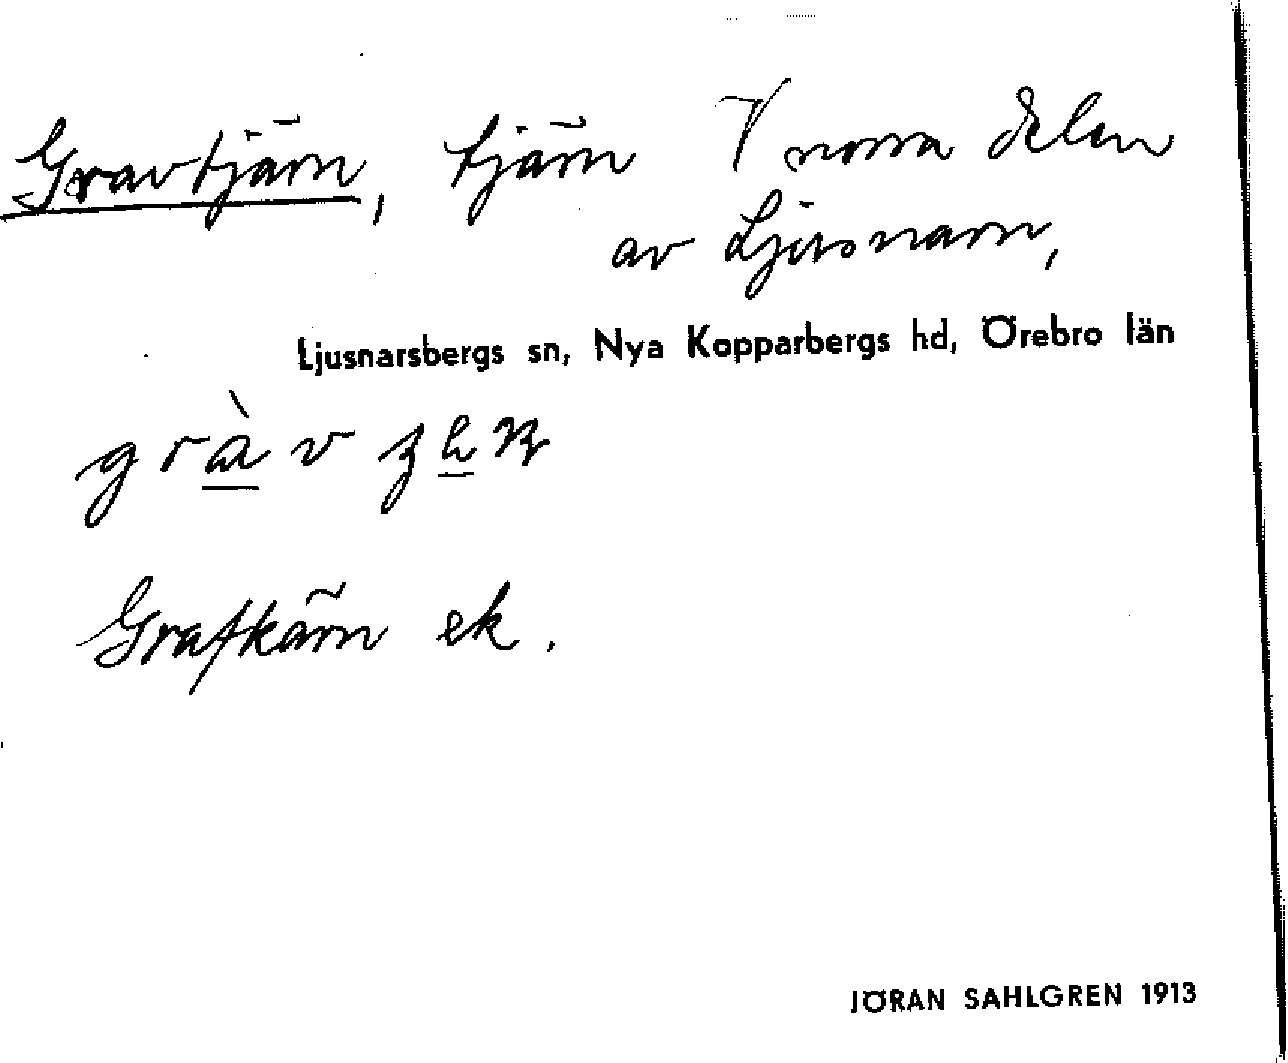 Gravtjärn, tjärn V norra delen
av Ljusnaren,
Ljusnarsbergs sn, Nya Kopparbergs hd, Örebro län
Grafkärn ek.
JÖRAN SAHLGREN 1913